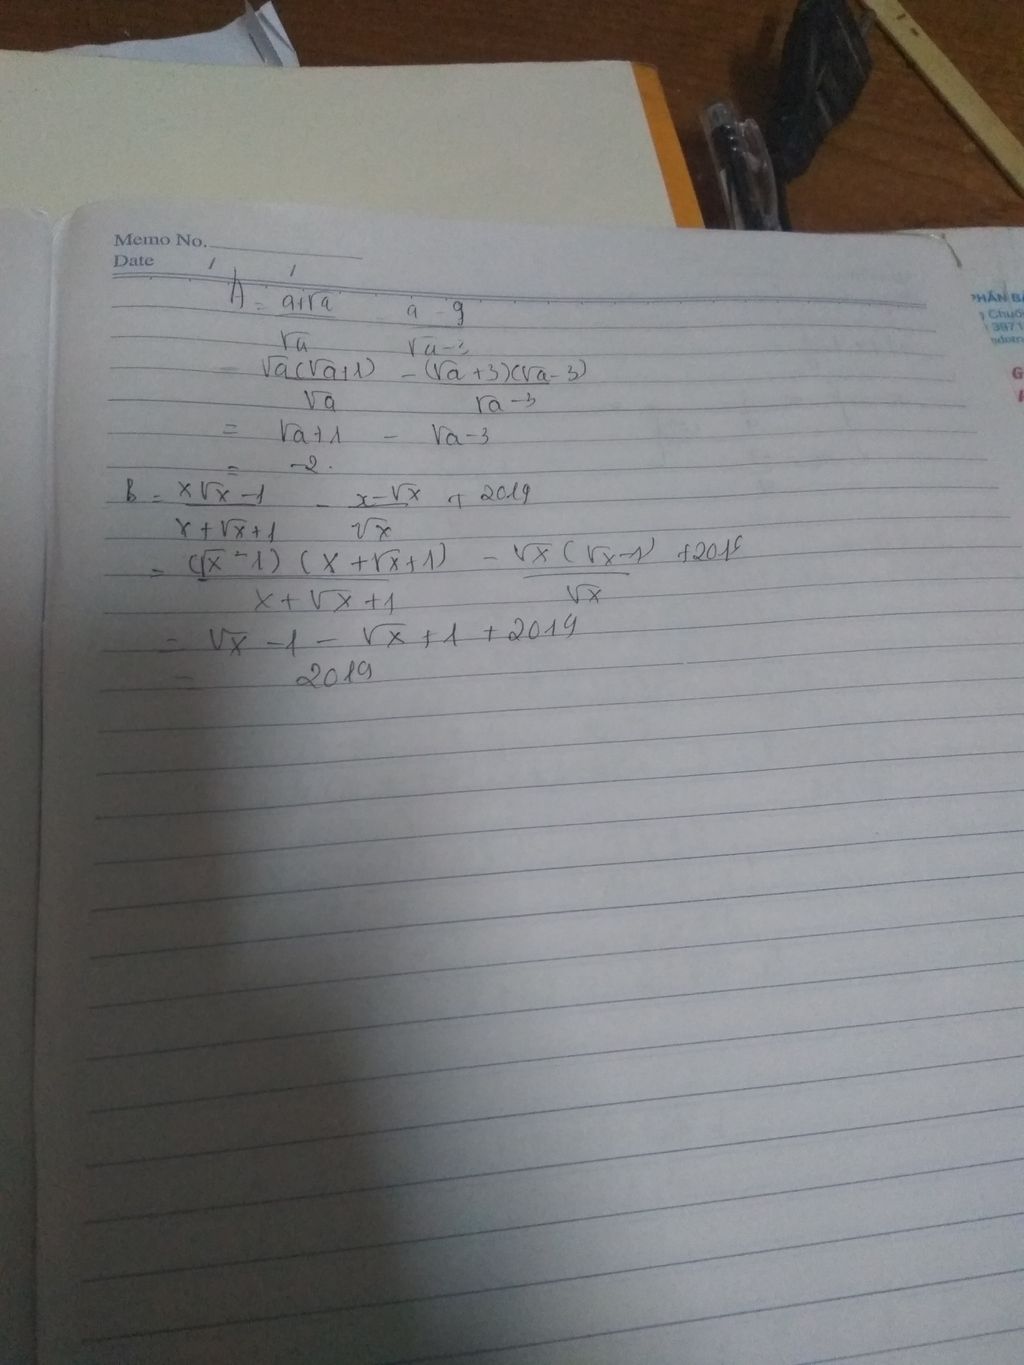 Memo No.
Date / /
A = a+√a / √a - a - 9 / √a-3
= √a(√a+1) / √a - (√a+3)(√a-3) / √a-3
= √a+1 - √a-3
= -2.
B = x√x-1 / x+√x+1 - x-√x / √x + 2019
= (√x-1)(x+√x+1) / x+√x+1 - √x(√x-1) / √x +2019
= √x-1-√x+1+2019
= 2019
PHẦN
Chuố
397.1
G